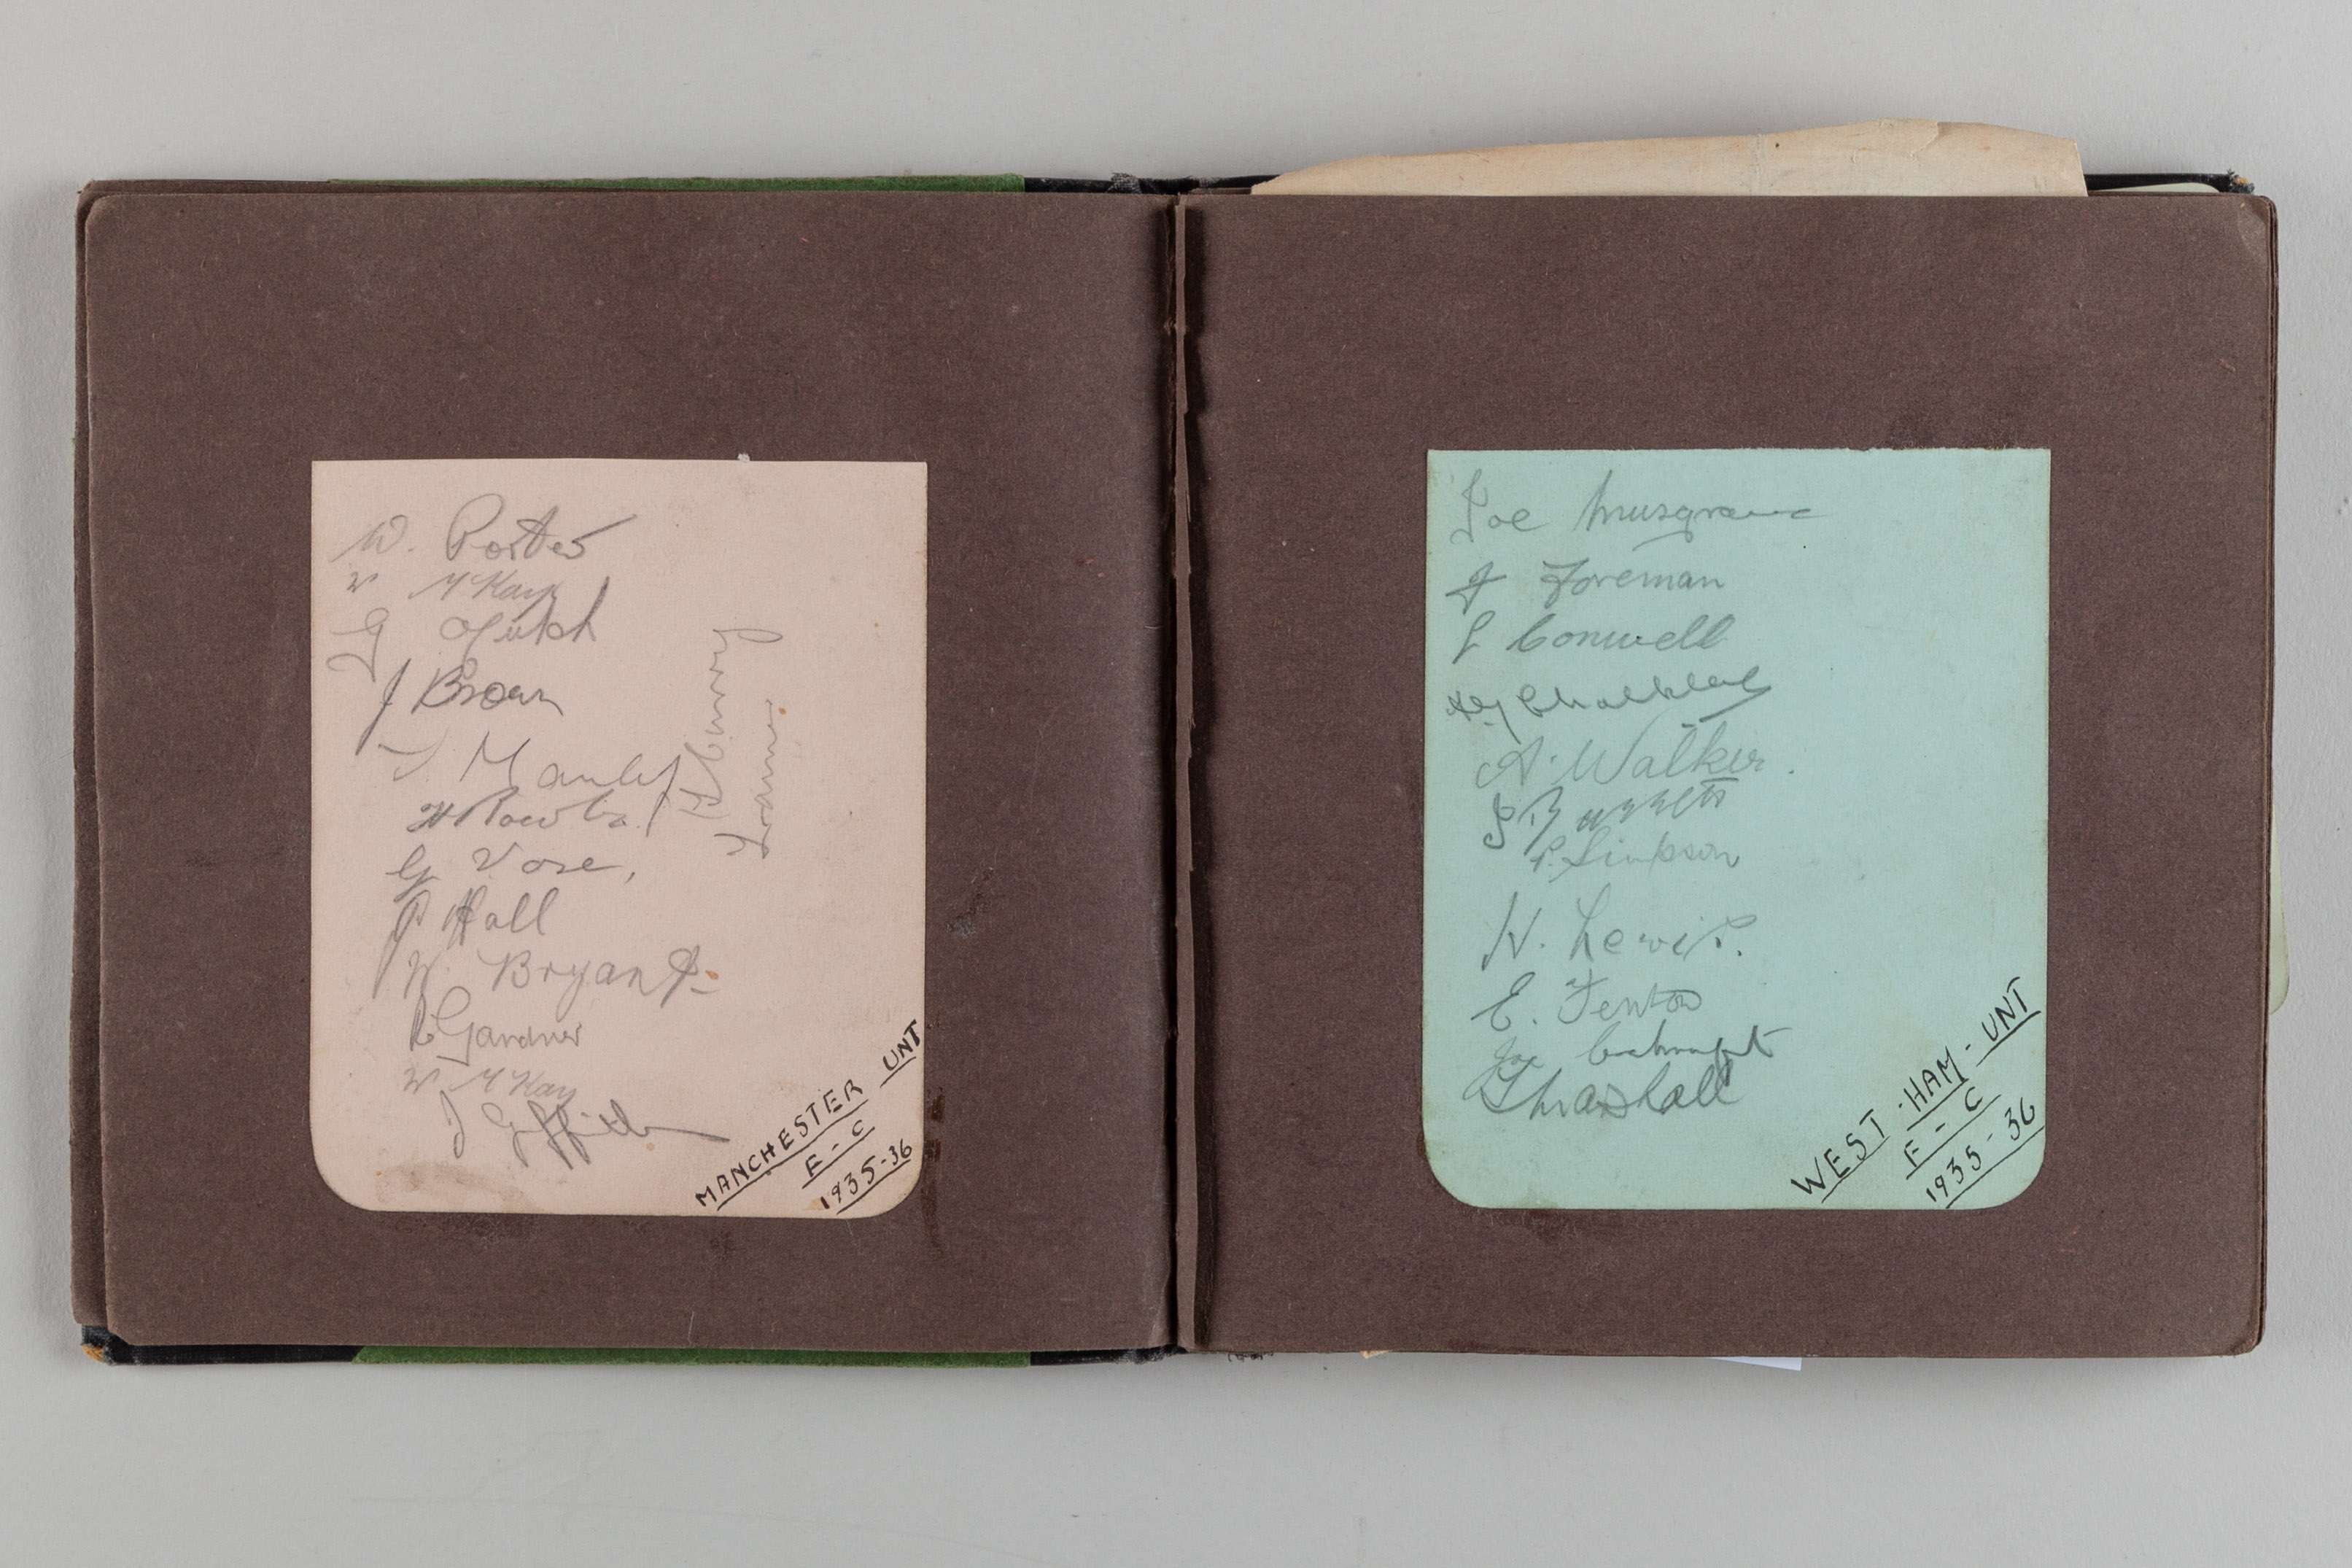 W. Porter
W McKay
G Mutch
J Brown
T. Manley
H Rowley
G Vose,
J Hall
W. Bryant
R Gardner
W McKay
J Griffiths
T Curry
Trainer
MANCHESTER UNT
F-C
1935-36
Joe Musgrave
J Foreman
L Conwell
A Walker.
P. Simpson
W. Lewis.
E. Fenton
Joe Cockroft
WEST-HAM-UNT
F-C
1935-36